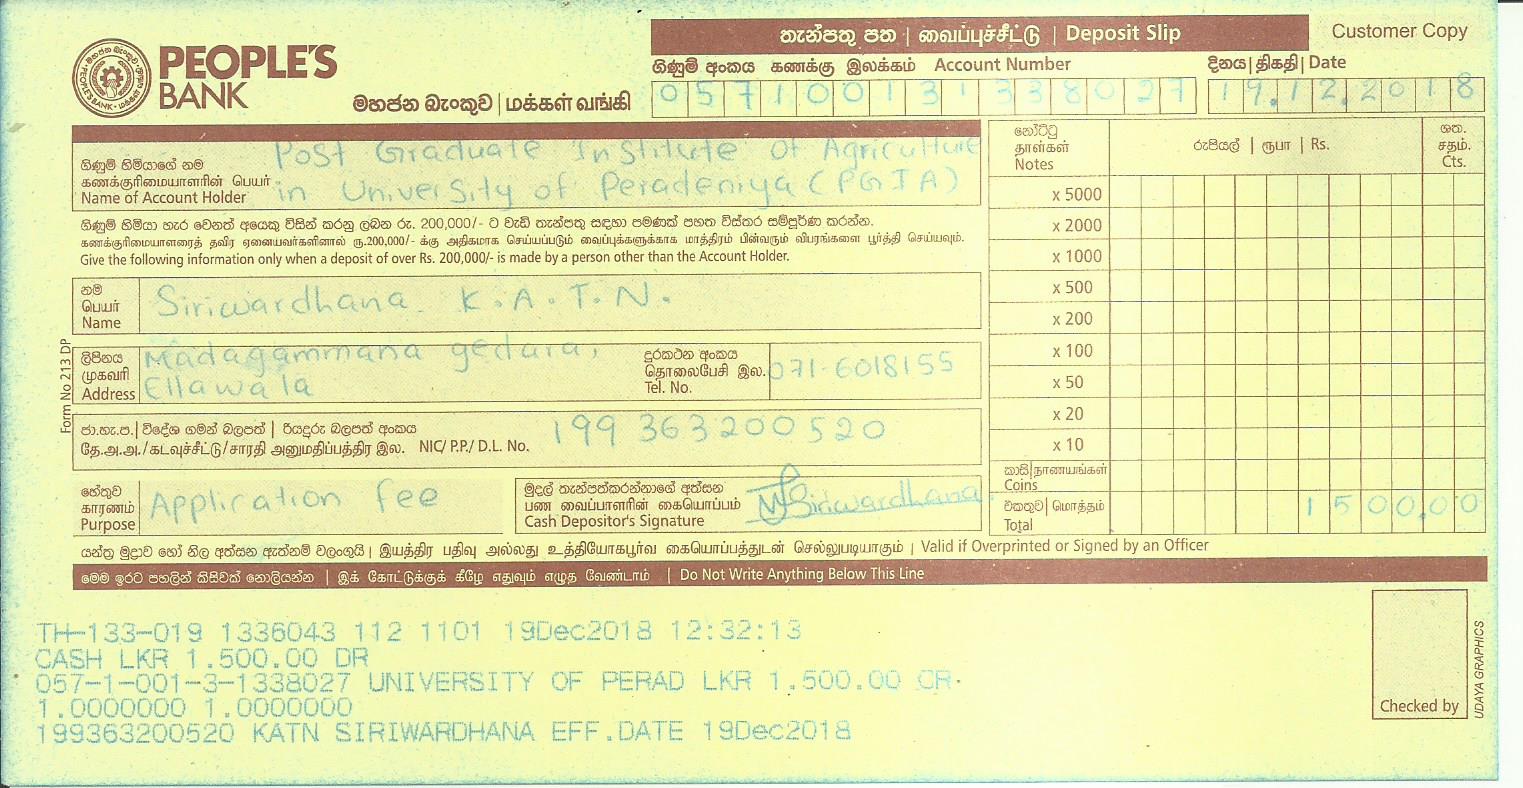 PEOPLE'S
BANK
මහජන බැංකුව | மக்கள் வங்கி
තැන්පතු පත | வைப்புச்சீட்டு | Deposit Slip
Customer Copy
ගිණුම් අංකය கணக்கு இலக்கம் Account Number
දිනය | திகதி | Date
057100131338027
19.12.2018
ගිණුම් හිමියාගේ නම
கணக்குரிமையாளரின் பெயர்
Name of Account Holder
Post Graduate Institute of Agriculture
in University of Peradeniya (PGIA)
ගිණුම් හිමියා හැර වෙනත් අයෙකු විසින් කරනු ලබන රු. 200,000/- ට වැඩි තැන්පතු සඳහා පමණක් පහත විස්තර සම්පූර්ණ කරන්න.
கணக்குரிமையாளரைத் தவிர ஏனையவர்களினால் ரூ.200,000/- க்கு அதிகமாக செய்யப்படும் வைப்புக்களுக்காக மாத்திரம் பின்வரும் விபரங்களை பூர்த்தி செய்யவும்.
Give the following information only when a deposit of over Rs. 200,000/- is made by a person other than the Account Holder.
නම
பெயர்
Name
Siriwardhana K.A.T.N.
ලිපිනය
முகவரி
Address
Madagammana gedara,
Ellawala
දුරකථන අංකය
தொலைபேசி இல.
Tel. No.
071-6018155
ජා.හැ.ප. | විදේශ ගමන් බලපත් | රියදුරු බලපත් අංකය
தே.அ.அ./கடவுச்சீட்டு/சாரதி அனுமதிப்பத்திர இல. NIC/ P.P./ D.L. No.
199363200520
හේතුව
காரணம்
Purpose
Application fee
මුදල් තැන්පත්කරන්නාගේ අත්සන
பண வைப்பாளரின் கையொப்பம்
Cash Depositor's Signature
Siriwardhana
නෝට්ටු
தாள்கள்
Notes
රුපියල් | ரூபா | Rs.
ශත.
சதம்.
Cts.
x 5000
x 2000
x 1000
x 500
x 200
x 100
x 50
x 20
x 10
කාසි | நாணயங்கள்
Coins
එකතුව | மொத்தம்
Total
1500.00
යන්ත්‍ර මුද්‍රාව හෝ නිල අත්සන ඇත්නම් වලංගුයි | இயத்திர பதிவு அல்லது உத்தியோகபூர்வ கையொப்பத்துடன் செல்லுபடியாகும் | Valid if Overprinted or Signed by an Officer
මෙම ඉරට පහලින් කිසිවක් නොලියන්න | இக் கோட்டுக்குக் கீழே எதுவும் எழுத வேண்டாம் | Do Not Write Anything Below This Line
TH-133-019 1336043 112 1101 19Dec2018 12:32:13
CASH LKR 1.500.00 DR
057-1-001-3-1338027 UNIVERSITY OF PERAD LKR 1.500.00 CR
1.0000000 1.0000000
199363200520 KATN SIRIWARDHANA EFF.DATE 19Dec2018
Checked by
UDAYA GRAPHICS
Form No 213 DP